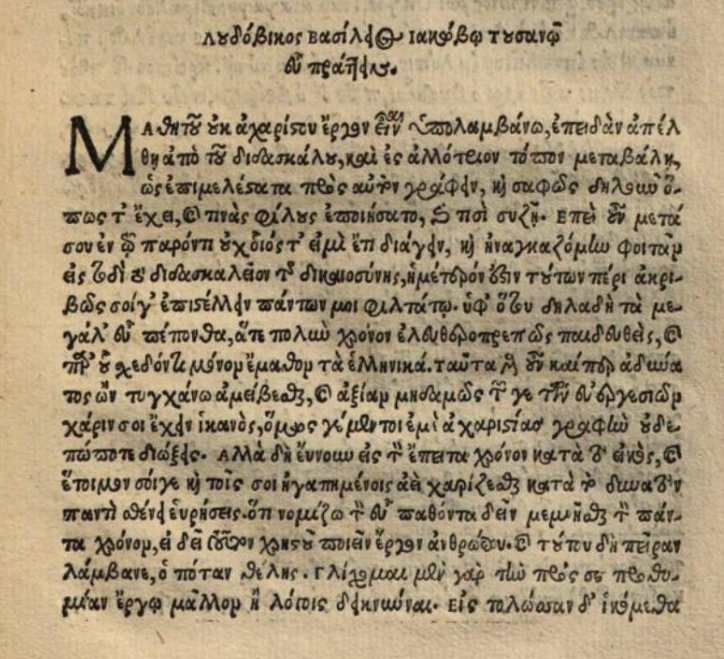 Λυδόβικος Βασίλειος Ἰακώβῳ Τυσανῷ
εὖ πράττειν.
Μαθητοῦ οὐκ ἀχαρίστου ἔργον εἶναι ὑπολαμβάνω, ἐπειδὰν ἀπέλ
θῃ ἀπὸ τοῦ διδασκάλου, καὶ ἐς ἀλλότριον τόπον μεταβάλῃ,
ὡς ἐπιμελέστατα πρὸς αὐτὸν γράφειν, καὶ σαφῶς δηλοῦν ὅ-
πως τ' ἔχει, καὶ τίνας φίλους ἐποιήσατο, καὶ ποῖ συζῇ. Ἐπεὶ οὖν μετά
σου ἐν ᾧ παρόντι οὐχ οἷός τ' εἰμὶ ἔτι διάγειν, καὶ ἠναγκαζόμην φοιτᾷν
εἰς διδασκαλεῖον τῆς δικαιοσύνης, ἡμέτερόν ἐστιν τούτων πέρι ἀκρι-
βῶς σοίγ' ἐπιστέλλειν πάντων μοι φιλτάτῳ. ὑφ' ὅτου δηλαδὴ τὰ με-
γάλ' εὖ πέπονθα, ἅτε πολὺν χρόνον ἐλευθεροπρεπῶς παιδευθεὶς, καὶ
παρ' οὗ σχεδόν τι μόνον ἔμαθον τὰ ἑλληνικά. ταῦτα οὖν καίπερ ἀδύνα
τος ὢν τυγχάνω ἀμείβεσθαι, καὶ ἀξίαν μηδαμῶς τήν γε τῶν εὐεργεσιῶν
χάριν σοι ἔχειν ἱκανὸς, ὅμως γέ μέντοι ἐμὲ ἀχαριστίας γραφὴν οὐδε
πώποτε διώξεις. Ἀλλὰ δὴ ἔννουν εἰς τὸν ἔπειτα χρόνον κατὰ τὸ εἰκὸς, καὶ
ἕτοιμον σοίγε καὶ τοῖς σοι ἠγαπημένοις ἀεὶ χαρίζεσθαι κατὰ τὸ δυνατὸν
παντὶ σθένει εὑρήσεις. ὅτι νομίζω τὸν εὖ παθόντα δεῖν μεμνῆσθαι τὸν πάν-
τα χρόνον, εἰ δεῖ αὐτὸν χρηστοῦ ποιεῖν ἔργον ἀνθρώπου. καὶ τούτου δὴ πεῖραν
λάμβανε, ὁπόταν θέλῃς. Γλίχομαι μὲν γὰρ τὴν πρὸς σε προθυ-
μίαν ἔργῳ μᾶλλον ἢ λόγοις δεικνύναι. Εἰς τολώσαν δ' ἱκόμεθα